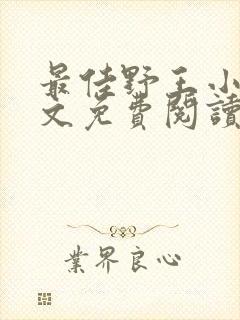 最佳野王小
文免費閱讀
業界良心